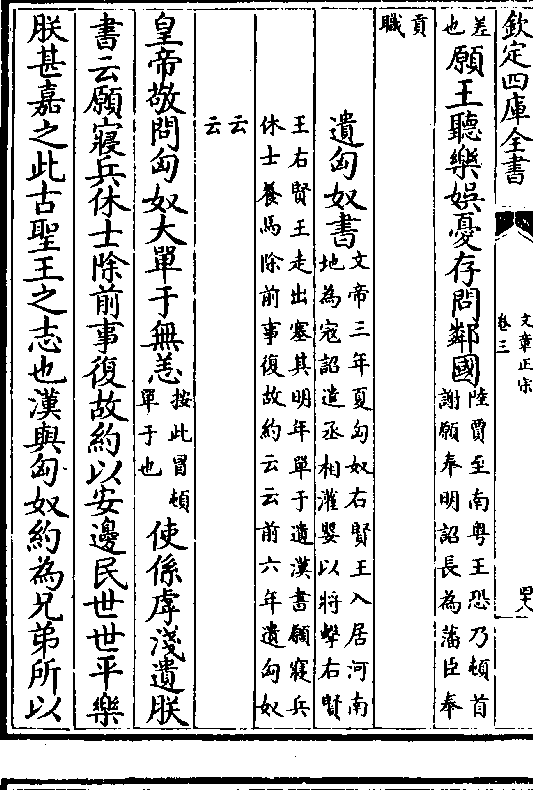 欽定四庫全書
文章正宗
卷三
四八
差
也
願王聽樂娛憂存問鄰國
陸賈至南粤王恐乃頓首
謝願奉明詔長為藩臣奉
貢
職
遺匈奴書
文帝三年夏匈奴右賢王入居河南
地為寇詔遣丞相灌嬰以將擊右賢
王右賢王走出塞其明年單于遺漢書願寢兵
休士養馬除前事復故約云云前六年遺匈奴
云
云
皇帝敬問匈奴大單于無恙
按此冒頓
單于也
使係虖淺遺朕
書云願寢兵休士除前事復故約以安邊民世世平樂
朕甚嘉之此古聖王之志也漢與匈奴約為兄弟所以